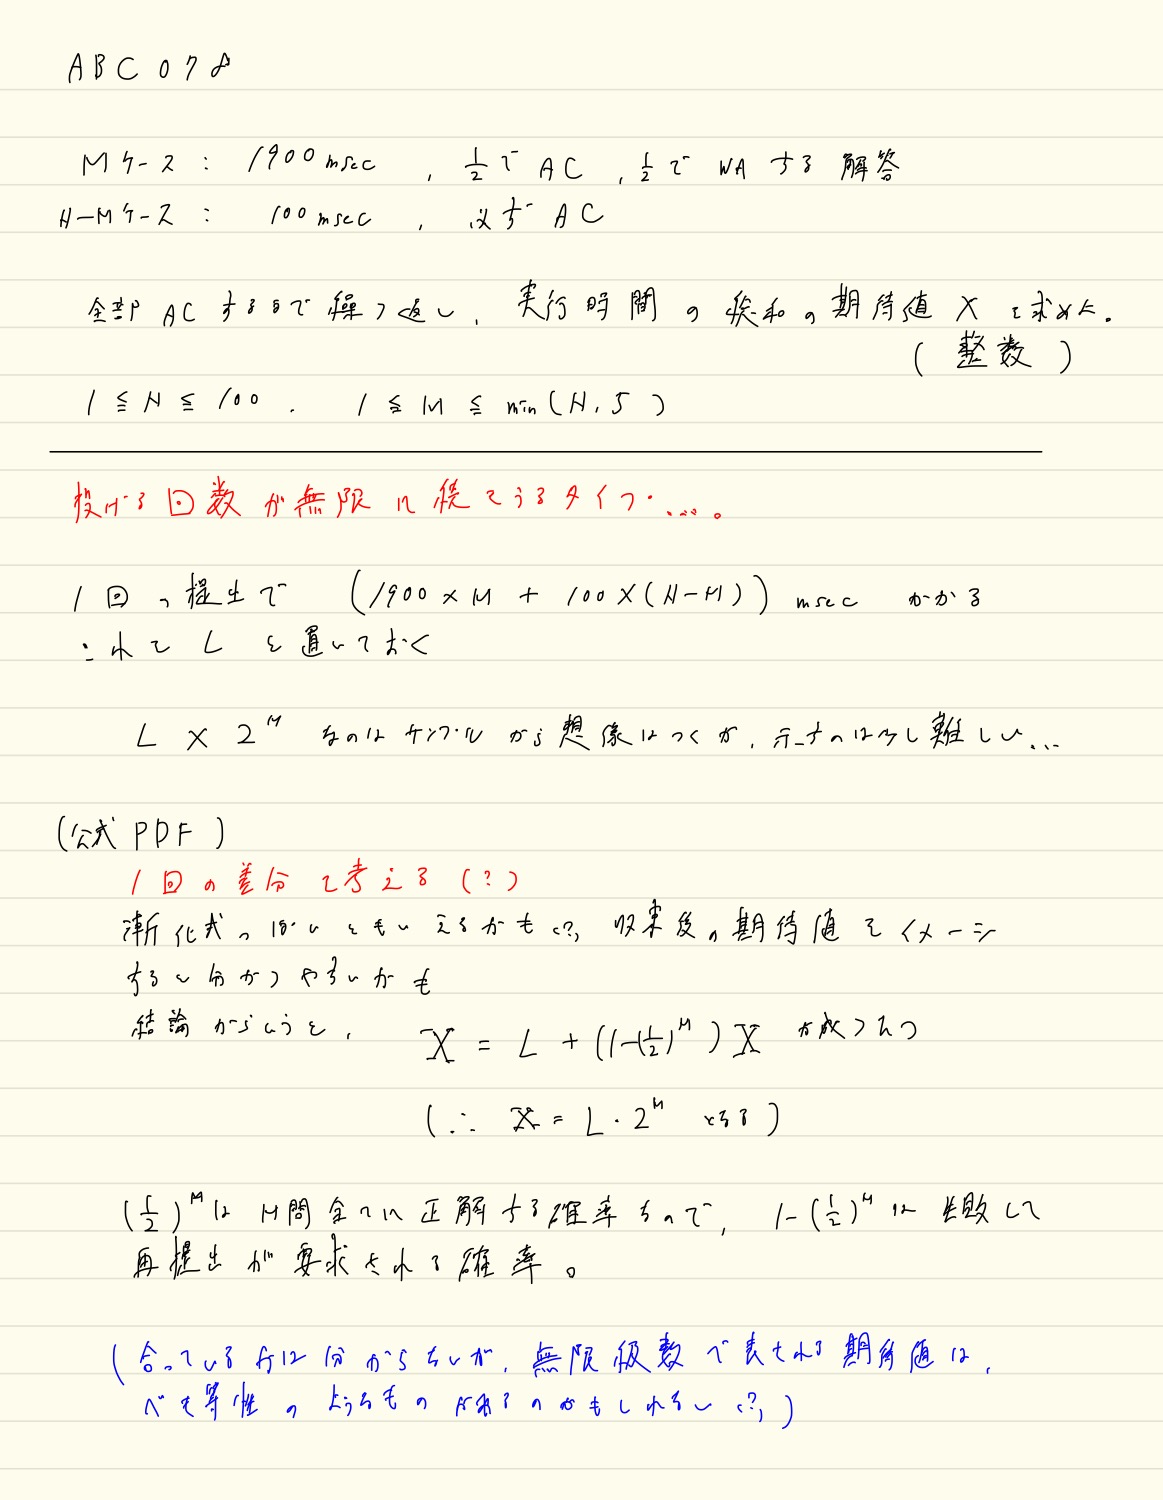 ABC078
Mケース : 1900msec , 1/2でAC , 1/2で WA する 解答
N-Mケース : 100msec , 必ず AC
全部 AC するまで繰り返し、実行時間 の 総和の期待値 X を求めよ.
(整数)
1 ≦ N ≦ 100 . 1 ≦ M ≦ min(N, 5)
投げる回数が無限に続きうるタイプ....。
1回の提出で (1900×M + 100×(N-M)) msec かかる
これを L と置いておく
L × 2^M なのはサンプルから想像はつくが、示すのは少し難しい...
(公式PDF)
1回の差分で考える(?)
漸化式っぽいともいえるかも(?) 収束後の期待値をイメージ
すると分かりやすいかも
結論からいうと, X = L + (1-(1/2)^M) X が成り立つ
(∴ X = L・2^M となる)
(1/2)^M は M問全てに正解する確率なので, 1-(1/2)^M は 失敗して
再提出が要求される確率。
(合っているかは分からないが、無限級数で表される期待値は、
べき等性のようなものがあるのかもしれない(?))